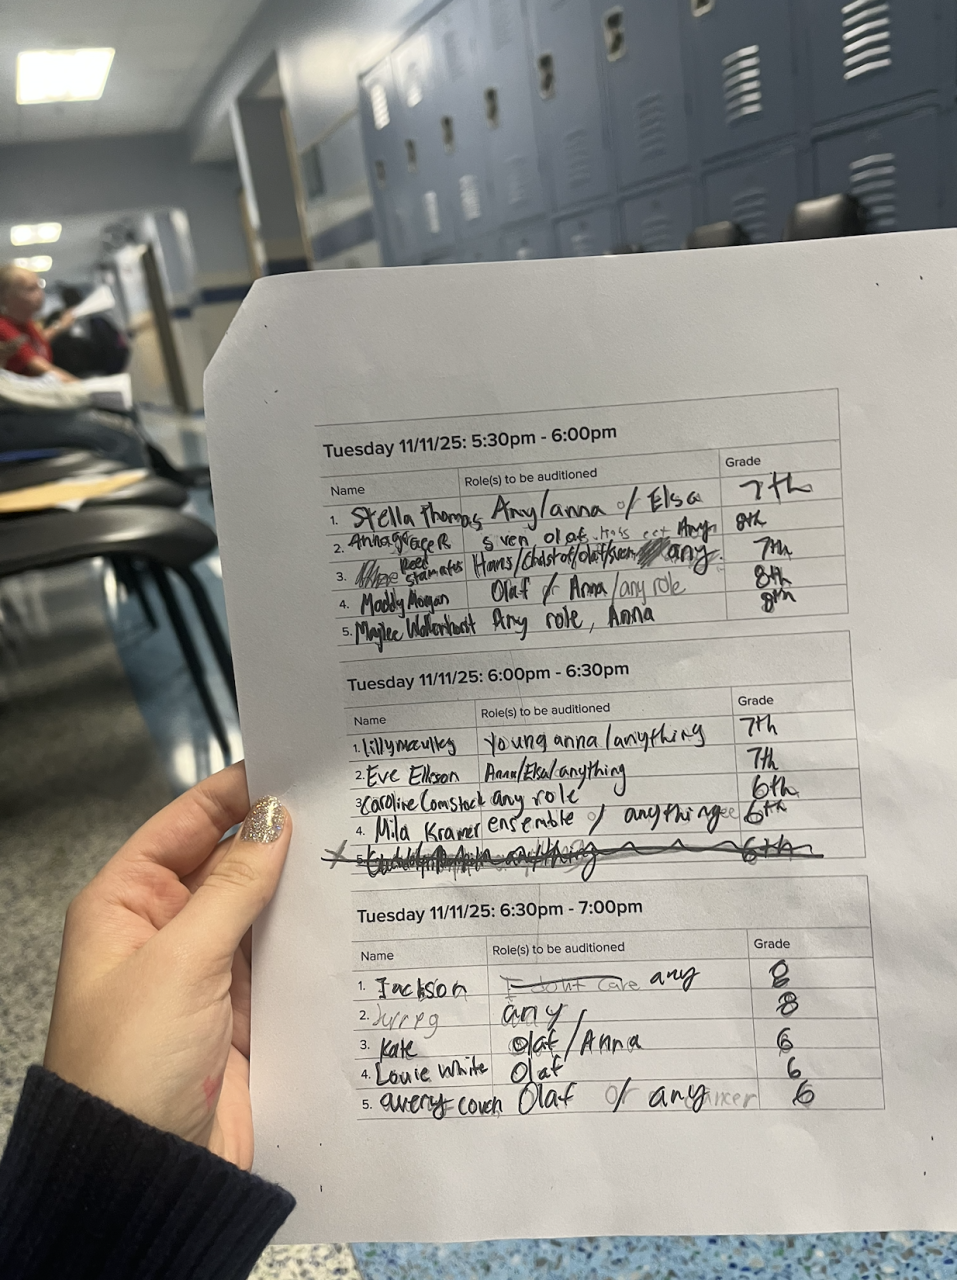 Tuesday 11/11/25: 5:30pm - 6:00pm
Name Role(s) to be auditioned Grade
1. Stella Thomas Any/anna o/ Elsa 7th
2. Annagrace R sven olaf Any 8th
3. Reed stamates Hans/Christof/Olaf/sven any 7th
4. Maddy Morgan Olaf / Anna /any role 8th
5. Maylee Any role, Anna 8th
Tuesday 11/11/25: 6:00pm - 6:30pm
Name Role(s) to be auditioned Grade
1. Young anna /anything 7th
2. Eve Anna/Elsa/anything 7th
3. Caroline Comstock any role 6th
4. Mila Kramer ensemble o/ anything 6th
5. anything 6th
Tuesday 11/11/25: 6:30pm - 7:00pm
Name Role(s) to be auditioned Grade
1. Jackson I dont care any 8
2. any 8
3. Kate Olaf/Anna 6
4. Louie White Olaf 6
5. avery couch Olaf o/ any 6